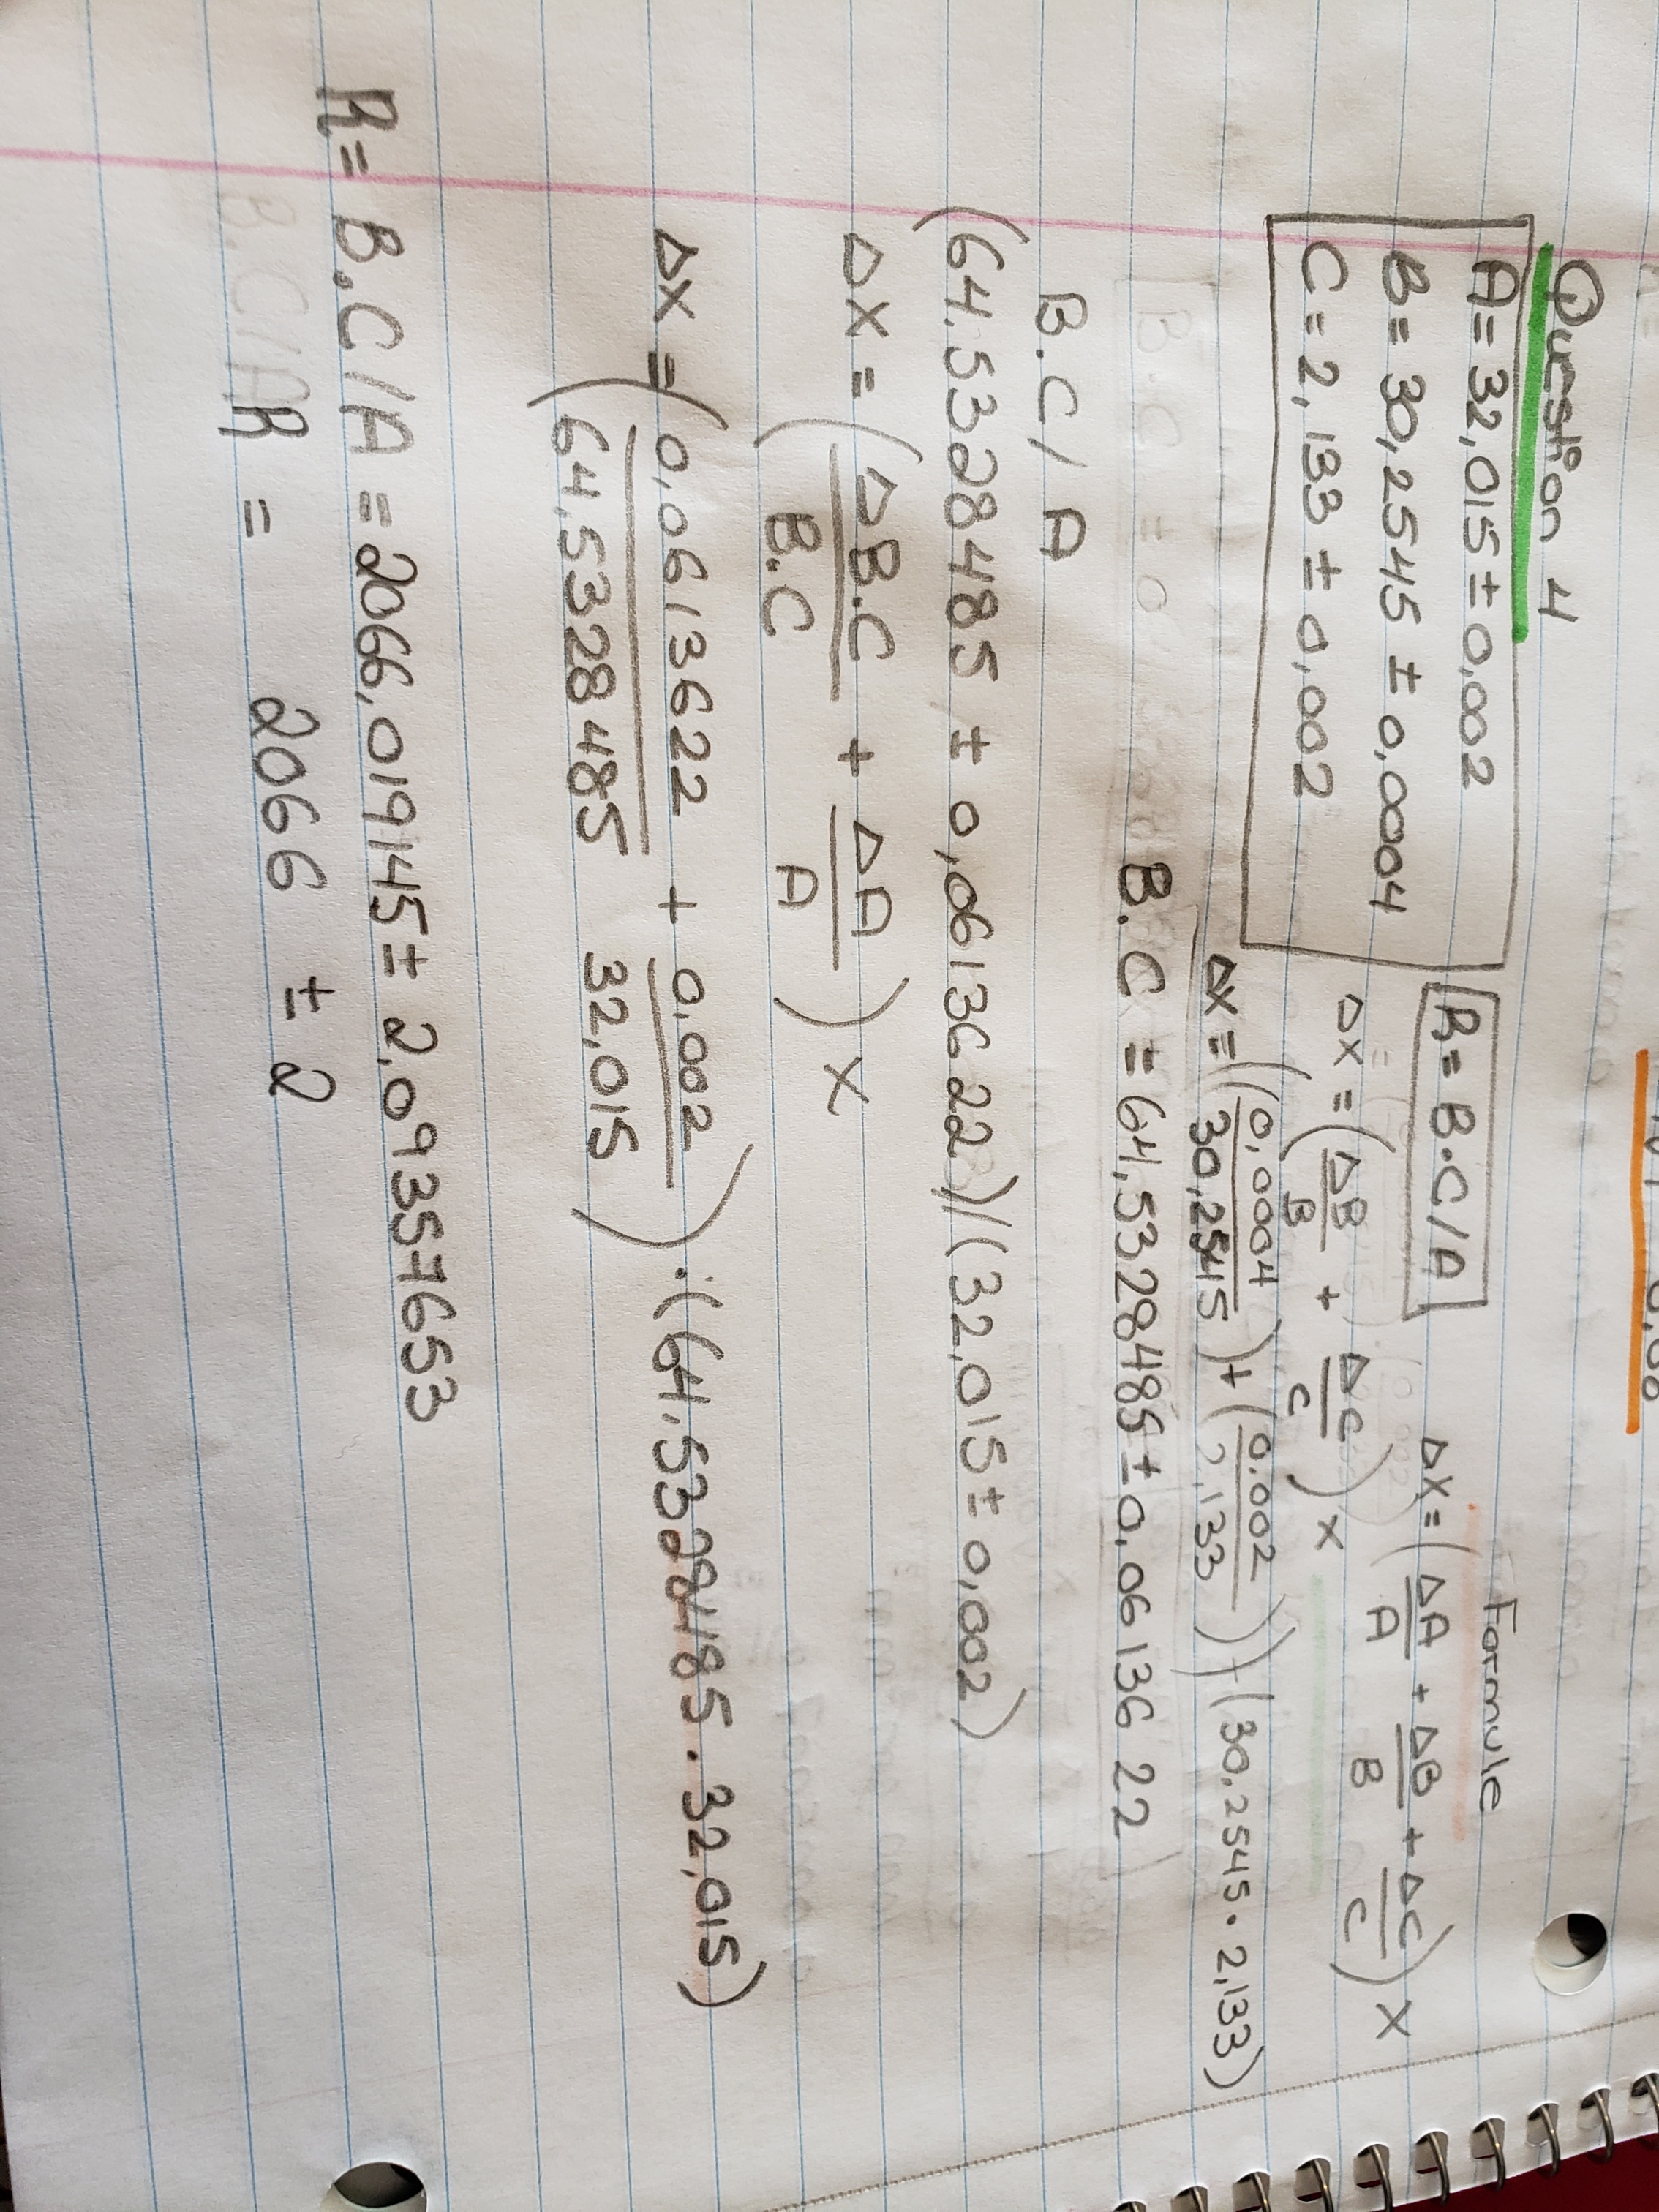 Question 4
Formule
A = 32,015 ± 0,002
B = 30,2545 ± 0,0004
C = 2,133 ± 0,002
R = B.C/A
Δx = (ΔA/A + ΔB/B + ΔC/C) x
Δx = (ΔB/B + ΔC/C) x
Δx = ((0,0004/30,2545) + (0.002/2,133)) · (30,2545 · 2,133)
B.C = 64,5328485 ± 0,0613622
B.C/A
(64,5328485 ± 0,0613622)/(32,015 ± 0,002)
Δx = (ΔB.C/B.C + ΔA/A) x
Δx = (0,0613622/64,5328485 + 0,002/32,015) · (64,5328485 · 32,015)
R = B.C/A = 2066,019145 ± 2,09357653
R = 2066 ± 2